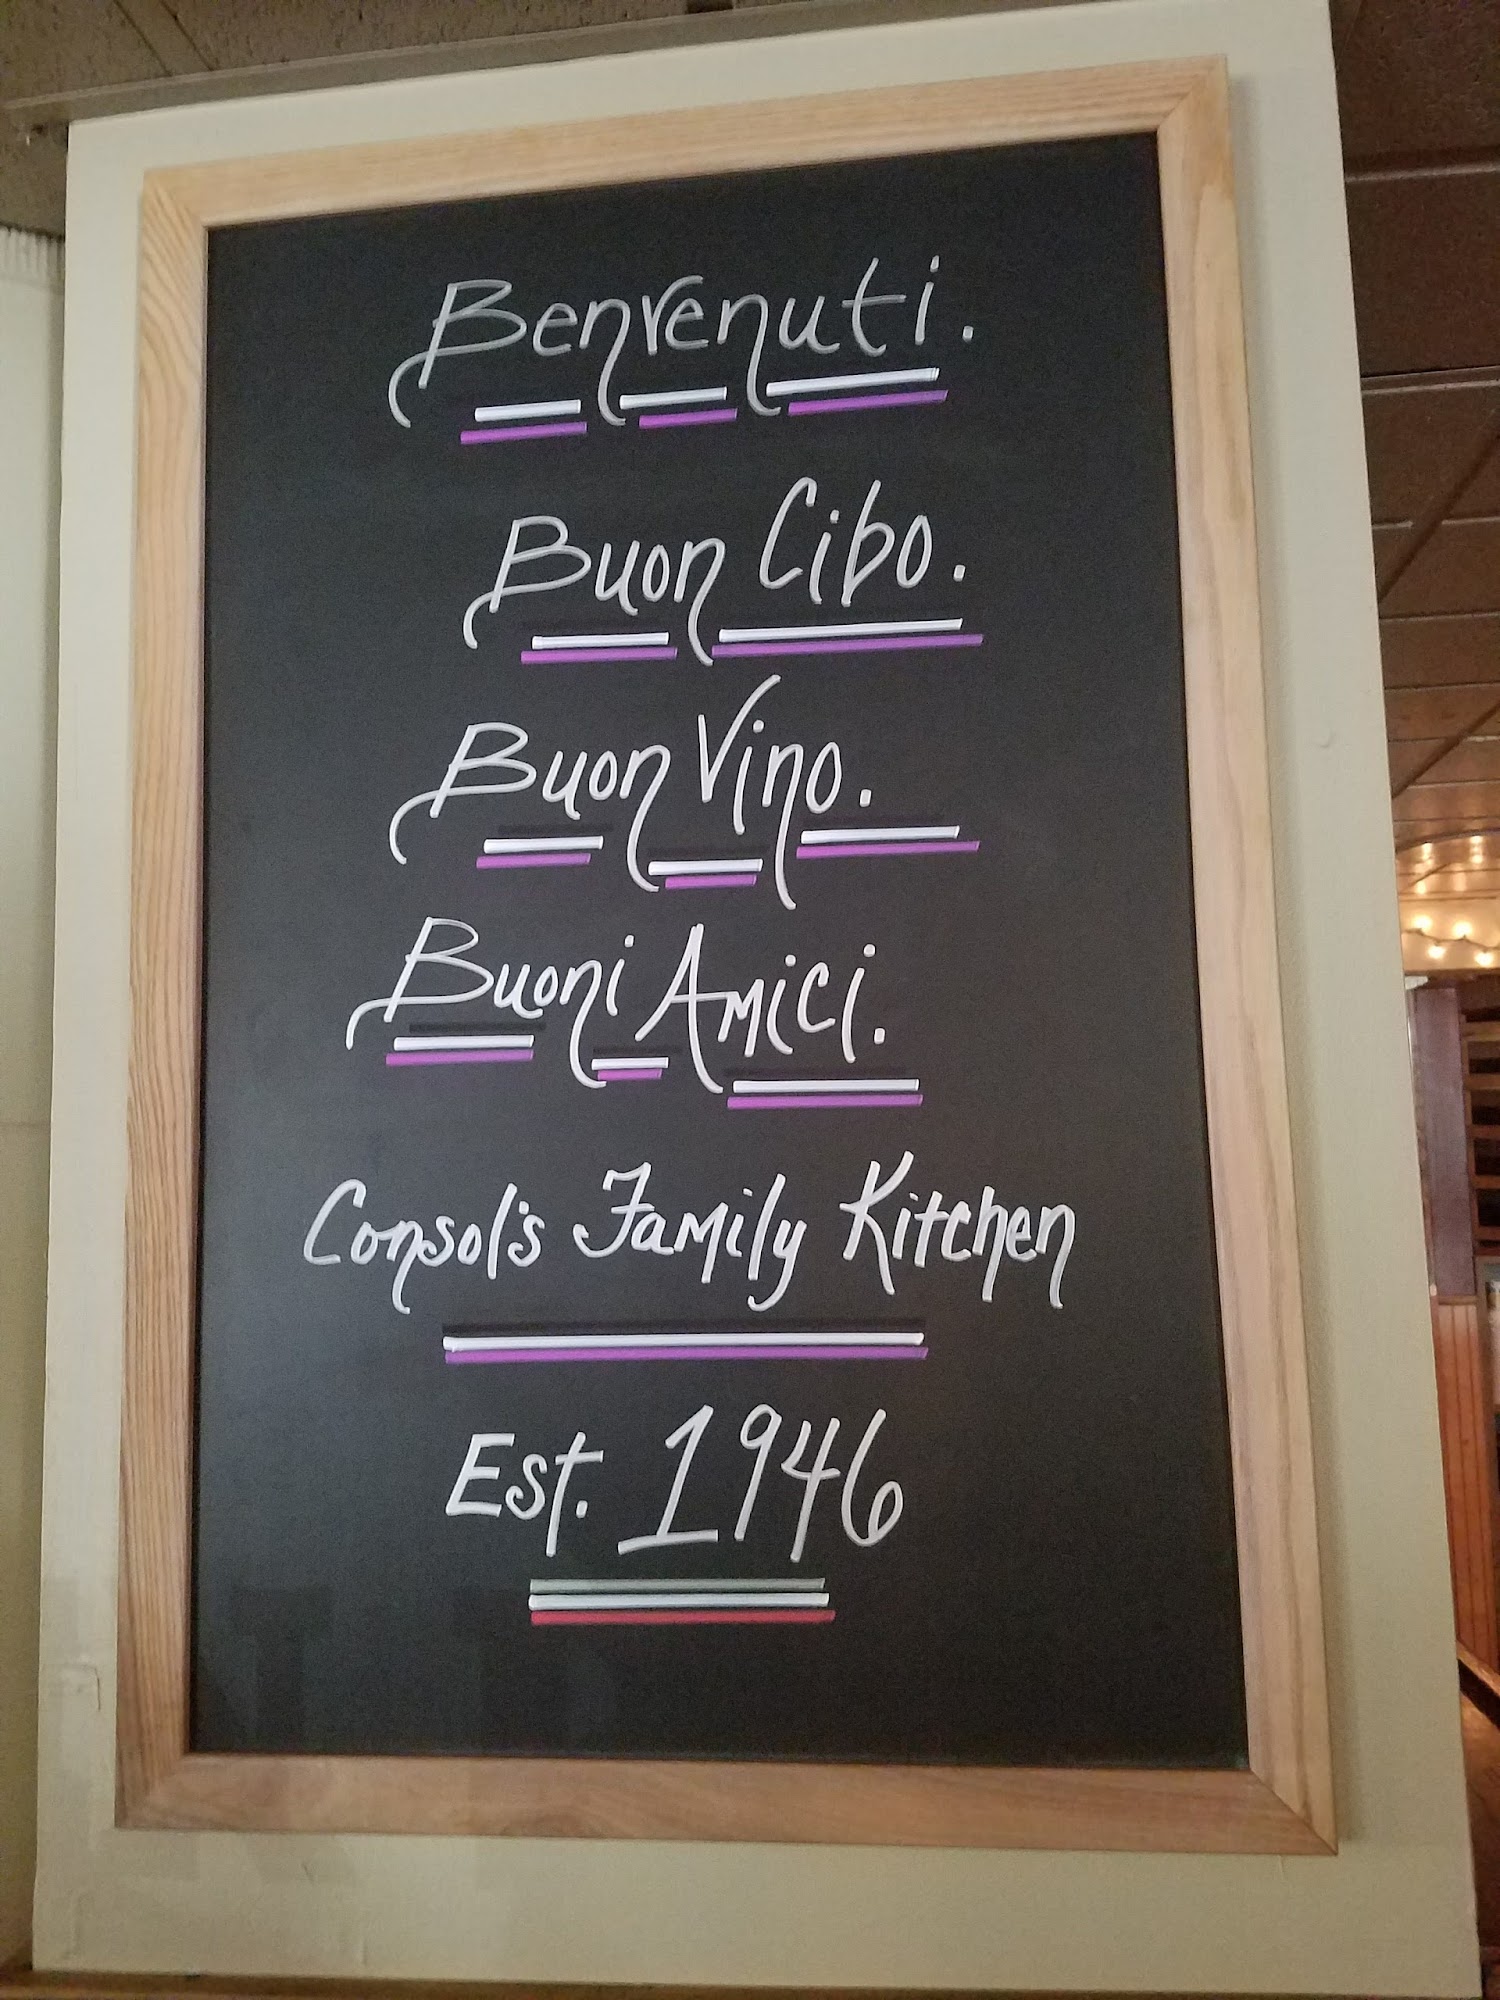 Benvenuti.
Buon Cibo.
Buon Vino.
Buoni Amici.
Consol's Family Kitchen
Est. 1946